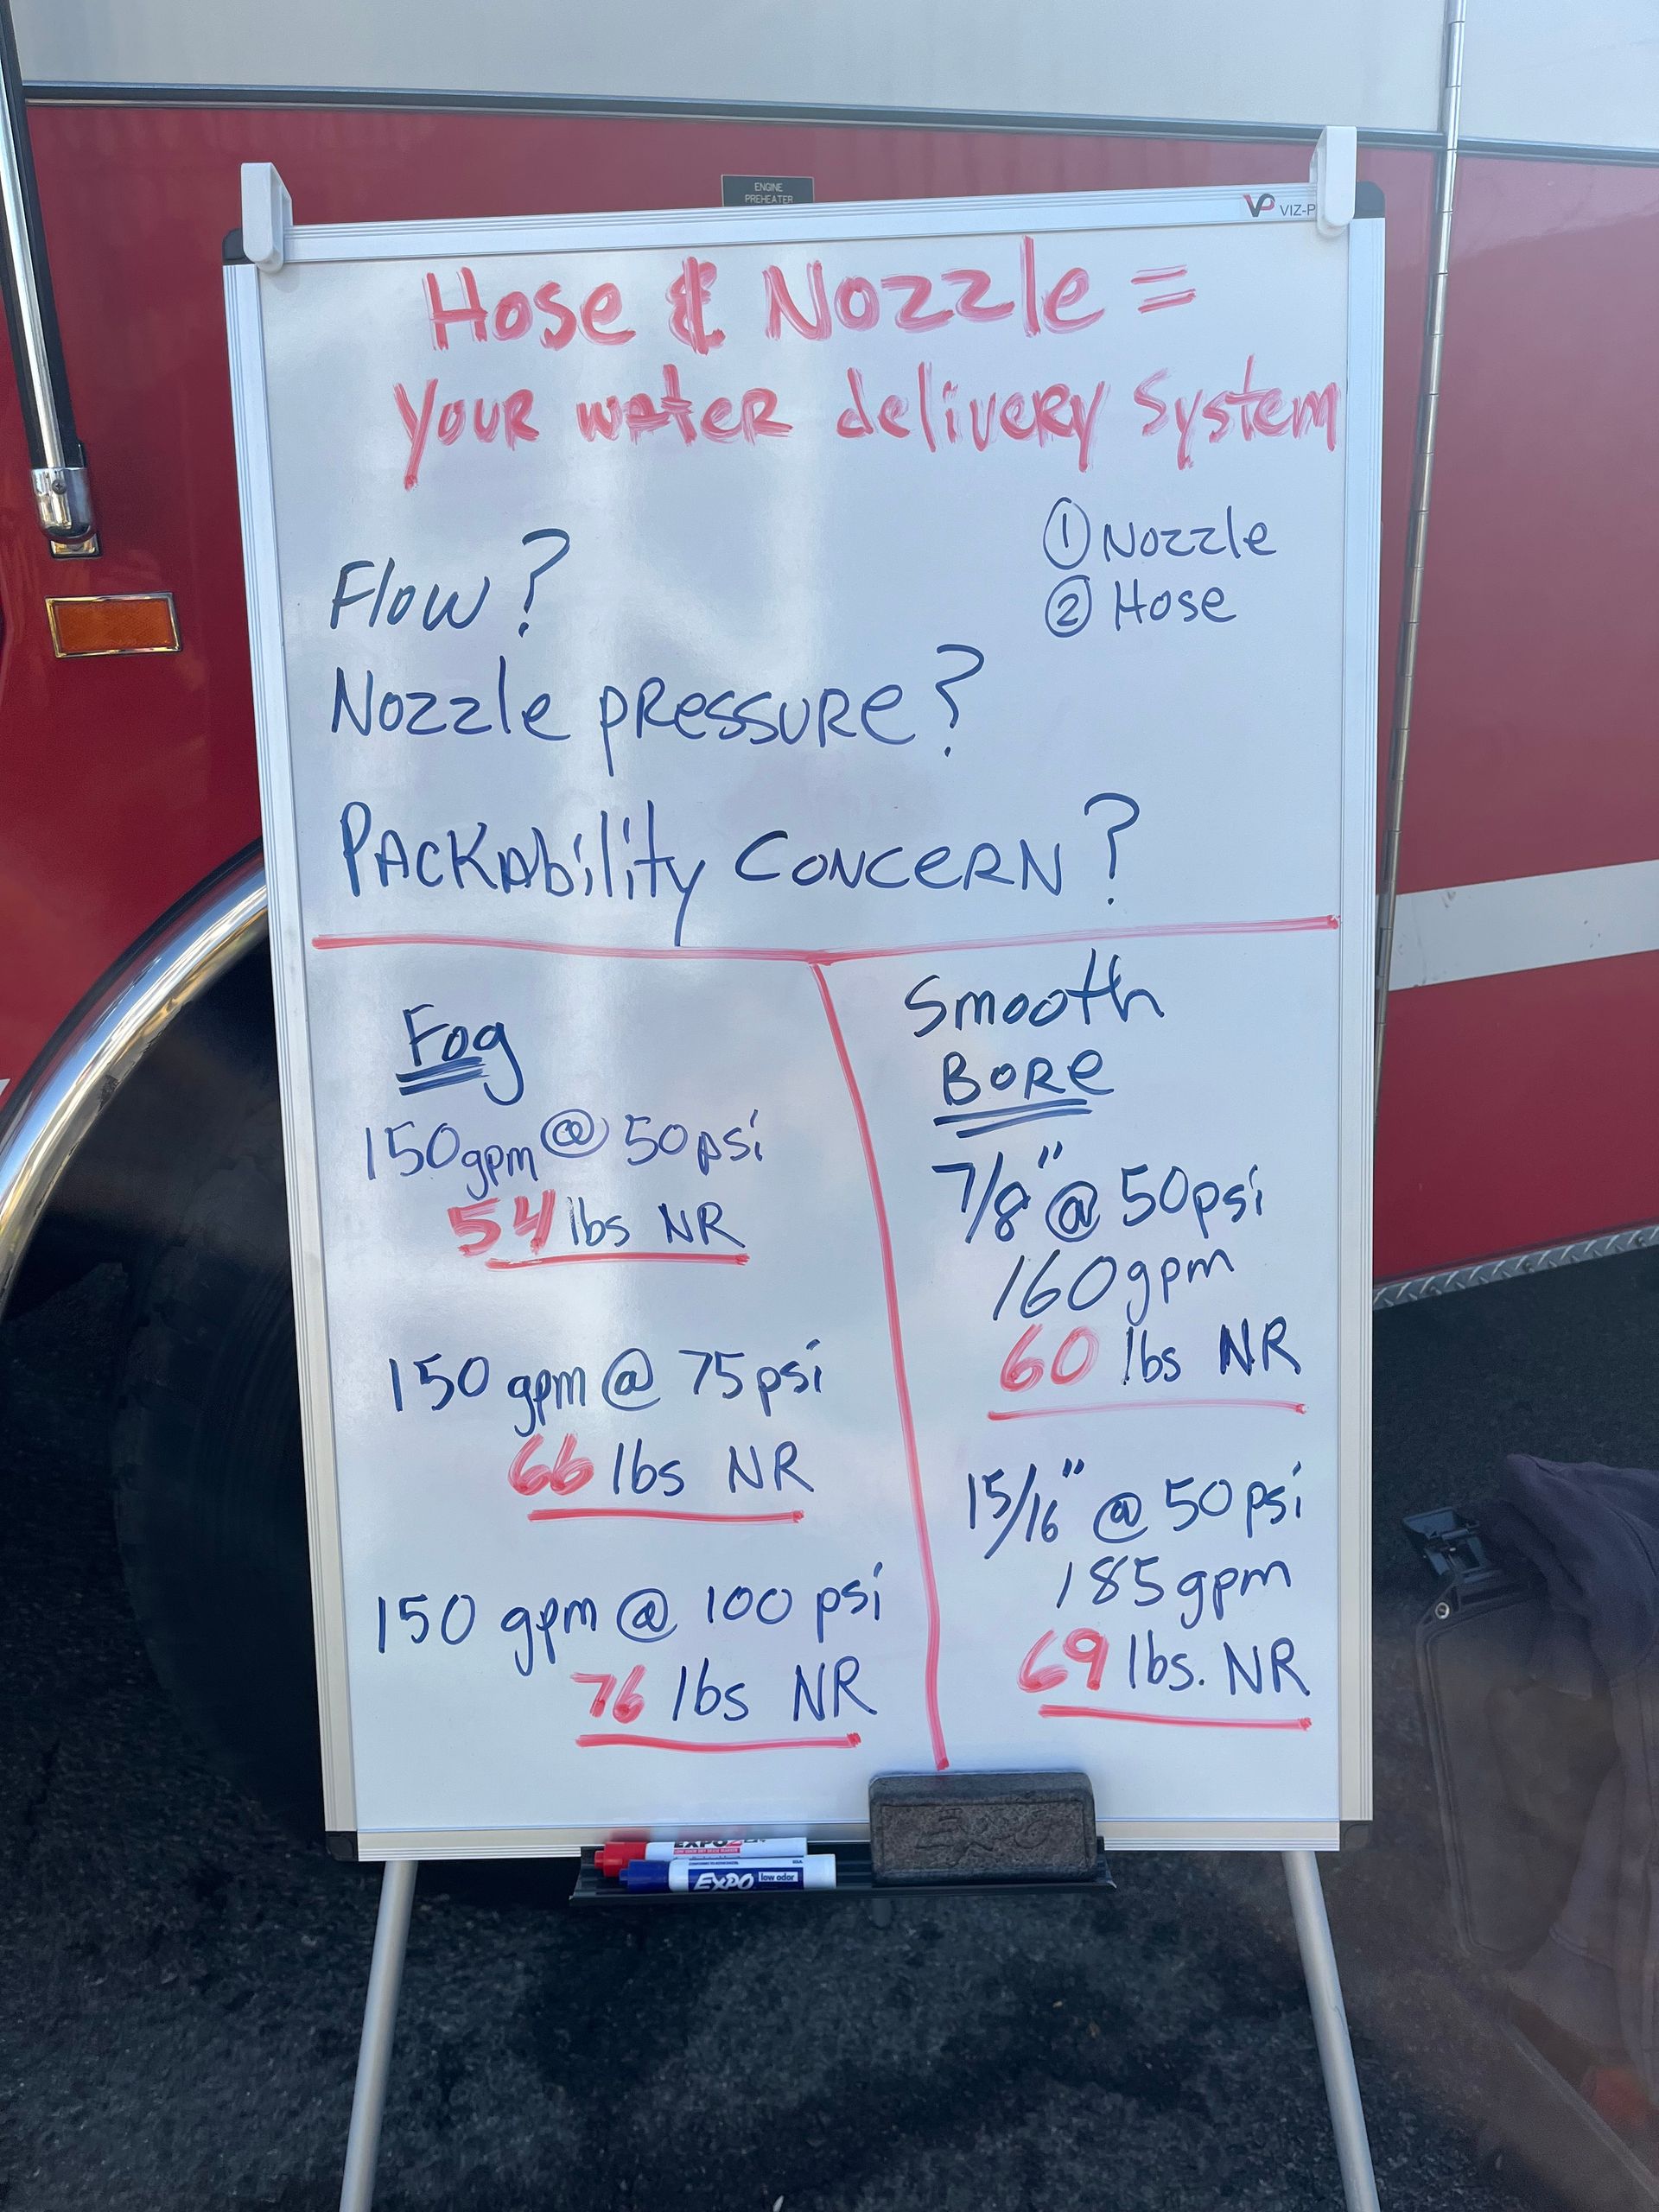 ENGINE
PREHEATER
VIZ-P
Hose & Nozzle =
Your water delivery System
① Nozzle
② Hose
Flow?
Nozzle pressure?
Packability concern?
Fog
150gpm @ 50psi
54 lbs NR
150 gpm @ 75psi
66 lbs NR
150 gpm @ 100 psi
76 lbs NR
Smooth
Bore
7/8" @ 50psi
160gpm
60 lbs NR
15/16" @ 50psi
185gpm
69 lbs. NR
EXPO
EXPO
EXPO low odor